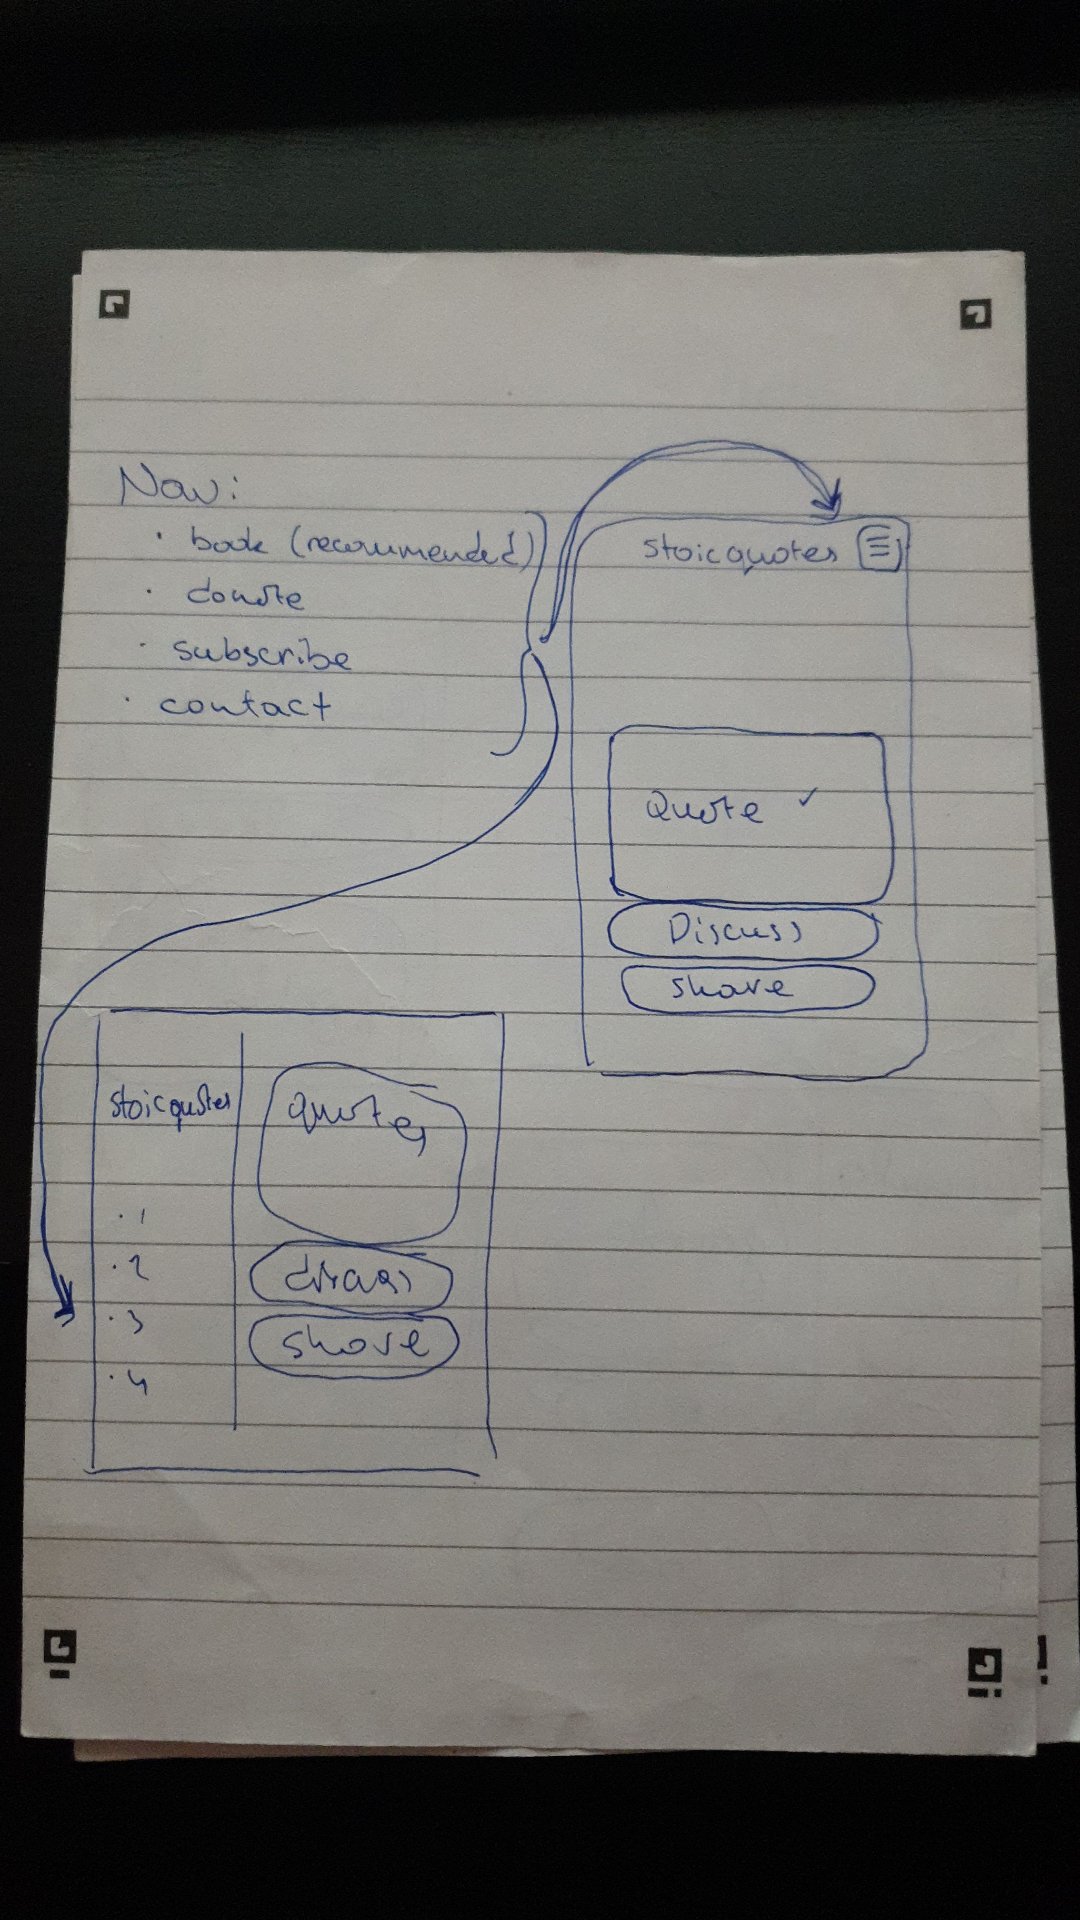 Nav:
· book (recommended)
· donate
· subscribe
· contact
stoicquotes
Quote ✓
Discuss
share
stoicquotes
· 1
· 2
· 3
· 4
quotes
discuss
share